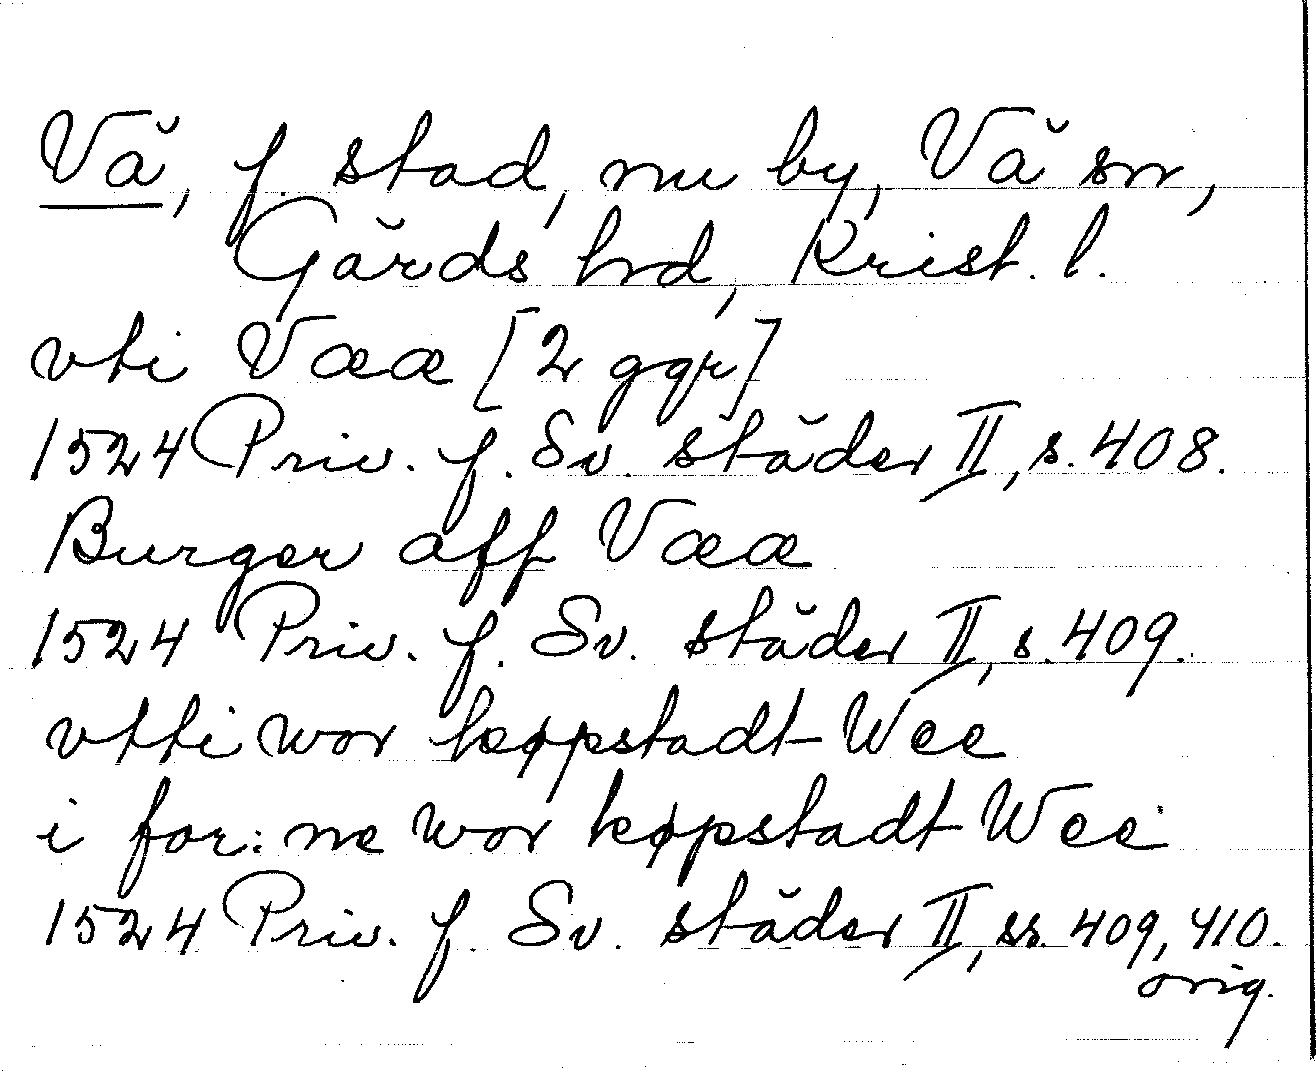 Vä, f. stad, nu by, Vä sn,
Gärds hrd, Krist. l.
vti Vææ [2 ggr]
1524 Priv. f. Sv. städer II, s. 408.
Burger aff Vææ
1524 Priv. f. Sv. städer II, s. 409.
vtti wor køpstadt Wee
i for:ne wor køpstadt Wee
1524 Priv. f. Sv. städer II, ss. 409, 410.
orig.